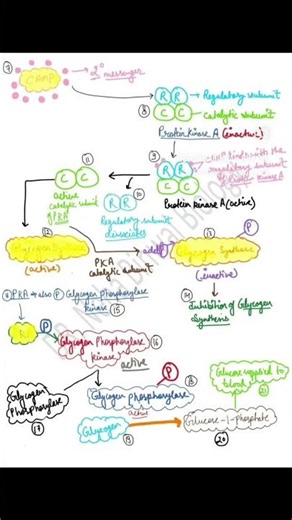 7
CAMP
2° messenger
R R
Regulatory subunit
8
C C
Catalytic subunit
Protein kinase A (inactive)
11
9
R R
CAMP binds with the
regulatory subunit
of Protein kinase A
C C
C C
active
catalytic subunit
of PKA
10
R R
Regulatory subunit
dissociates
Protein kinase A (active)
12
Glycogen Synthase
(active)
PKA
catalytic subunit
adds P
13
P
Glycogen Synthase
(inactive)
PKA also P Glycogen Phosphorylase
kinase 15
14
Inhibition of Glycogen
Synthesis
P
Glycogen Phosphorylase
kinase
active
16
Glycogen
Phosphorylase
17
P
Glycogen phosphorylase
active
18
Glucose
to
blood
21
Glycogen
19
Glucose-1-phosphate
20